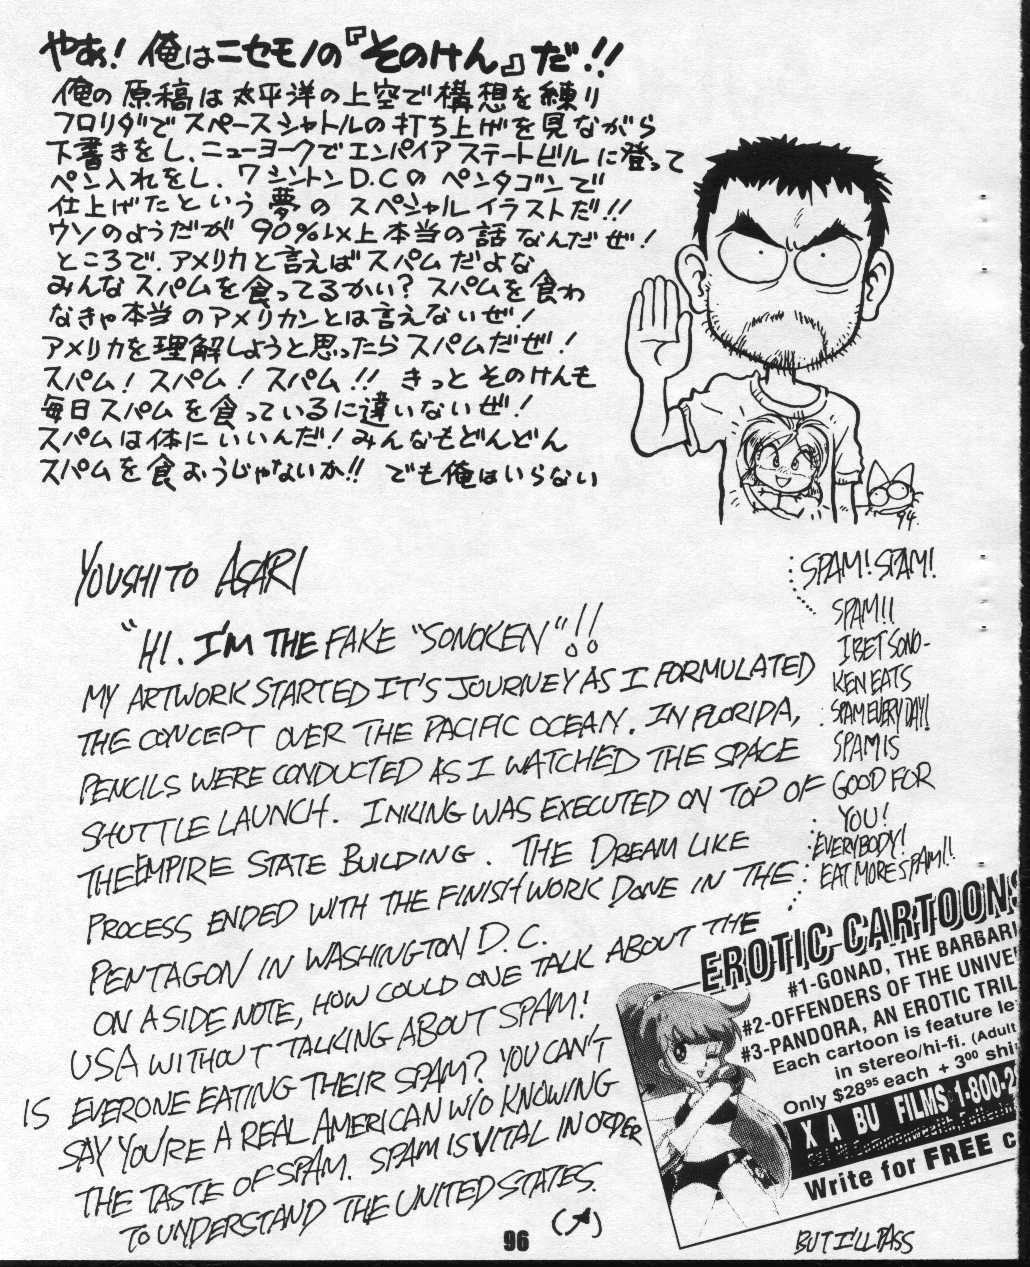 やぁ! 俺はニセモノの『そのけん』だ!!
俺の原稿は太平洋の上空で構想を練り
フロリダでスペースシャトルの打ち上げを見ながら
下書きをし、ニューヨークでエンパイアステートビルに登って
ペン入れをし、ワシントンD.Cのペンタゴンで
仕上げたという夢のスペシャルイラストだ!!
ウソのようだが90%以上本当の話なんだぜ!
ところで、アメリカと言えばスパムだよな
みんなスパムを食ってるかい? スパムを食わ
なきゃ本当のアメリカンとは言えないぜ!
アメリカを理解しようと思ったらスパムだぜ!
スパム! スパム! スパム!! きっとそのけんも
毎日スパムを食っているに違いないぜ!
スパムは体にいいんだ! みんなもどんどん
スパムを食おうじゃないか!! でも俺はいらない
94.
YOUSHITO ASARI
"HI. I'M THE FAKE "SONOKEN"!!
MY ARTWORK STARTED IT'S JOURNEY AS I FORMULATED
THE CONCEPT OVER THE PACIFIC OCEAN. IN FLORIDA,
PENCILS WERE CONDUCTED AS I WATCHED THE SPACE
SHUTTLE LAUNCH. INKING WAS EXECUTED ON TOP OF
THE EMPIRE STATE BUILDING. THE DREAM LIKE
PROCESS ENDED WITH THE FINISH WORK DONE IN THE
PENTAGON IN WASHINGTON D.C.
ON A SIDE NOTE, HOW COULD ONE TALK ABOUT THE
USA WITHOUT TALKING ABOUT SPAM!
IS EVERONE EATING THEIR SPAM? YOU CAN'T
SAY YOU'RE A REAL AMERICAN W/O KNOWING
THE TASTE OF SPAM. SPAM IS VITAL IN ORDER
TO UNDERSTAND THE UNITED STATES.
SPAM! SPAM!
SPAM!!
I BET SONO-
KEN EATS
SPAM EVERY DAY!
SPAM IS
GOOD FOR
YOU!
EVERYBODY!
EAT MORE SPAM!!
BUT I'LL PASS
EROTIC CARTOONS
#1-GONAD, THE BARBARI
#2-OFFENDERS OF THE UNIVE
#3-PANDORA, AN EROTIC TRIL
Each cartoon is feature le
in stereo/hi-fi. (Adult
Only $28.95 each + 3.00 shi
X A BU FILMS 1-800-2
Write for FREE c
96